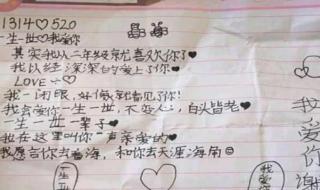 1314♡520
一生一世♡我爱你
其实我从二年级就喜欢你了!♥
我以经深深的爱上了你♥
LOVE
我一闭眼,好像就看见了你!
我会爱你一生一世,不变心,白头皆老♥
一生一世一辈子♥
我在这里叫你一声亲爱的♥
我愿言你去看海,和你去天涯海角☺
我爱你